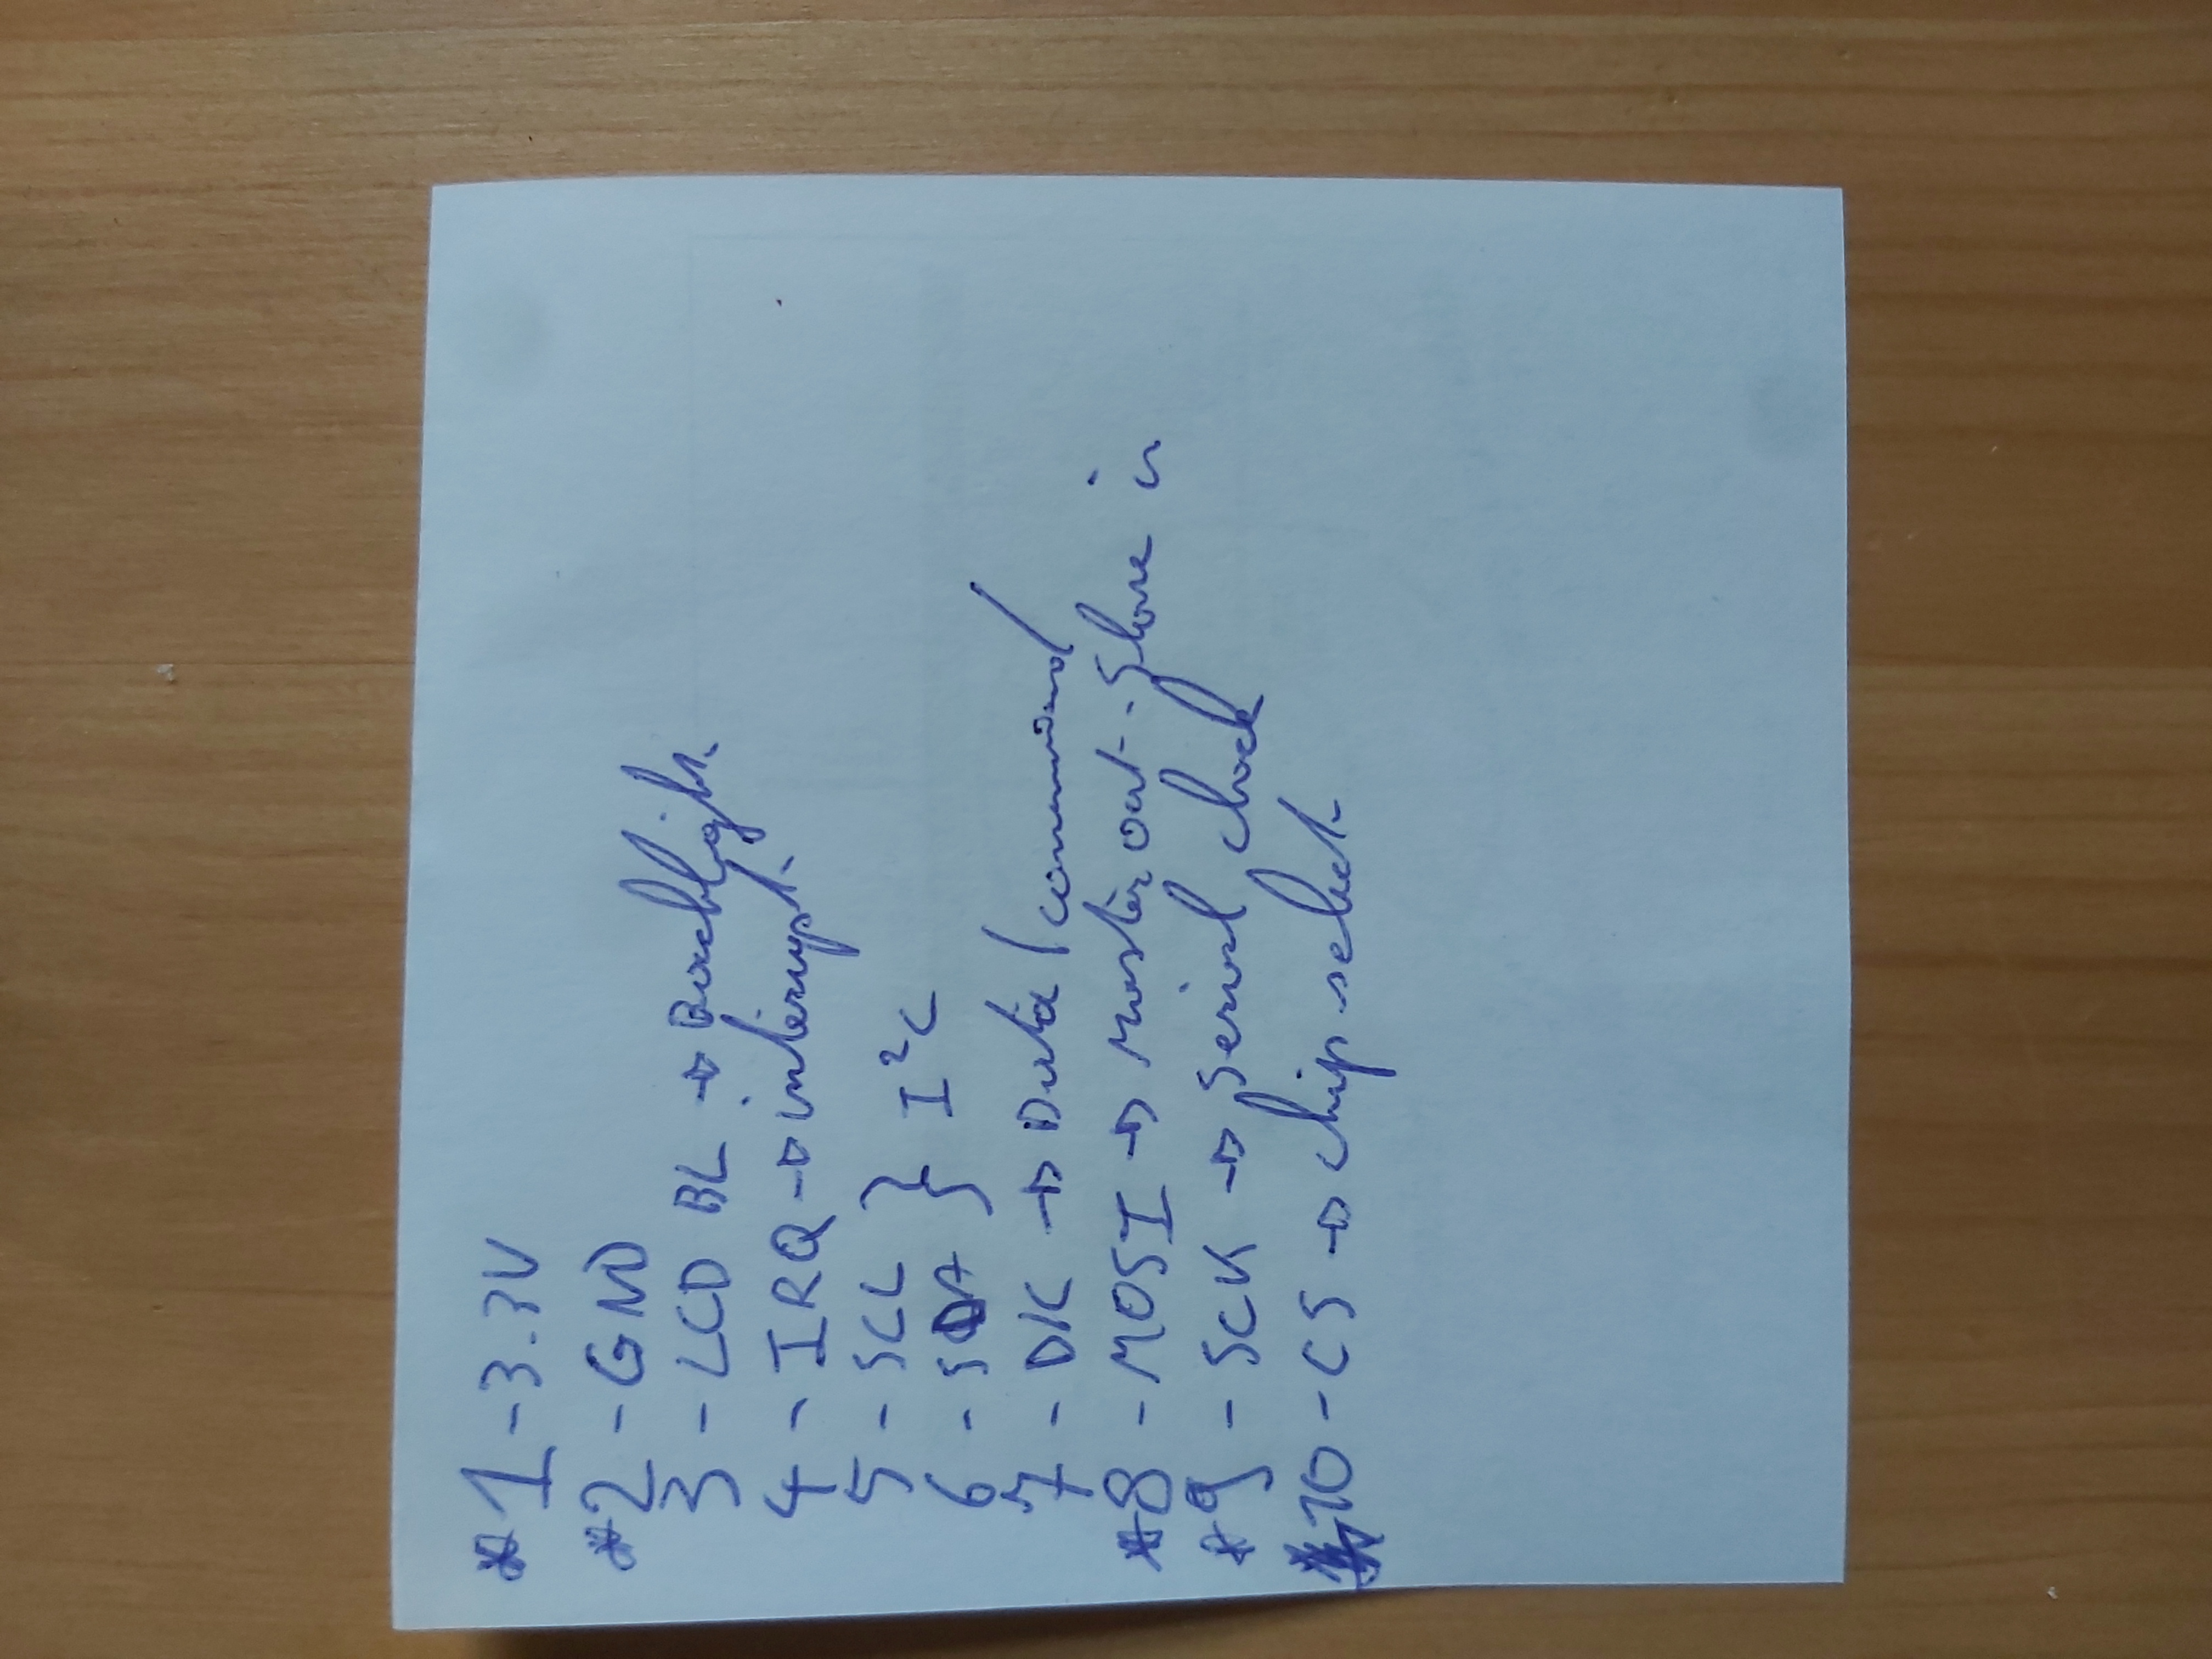 *1 - 3.3V
*2 - GND
3 - LCD BL → Backlight
4 - IRQ → interrupt
5 - SCL } I²C
6 - SDA
7 - D/C → Data/command
*8 - MOSI → Master out - Slave in
*9 - SCK → Serial clock
10 - CS → chip select